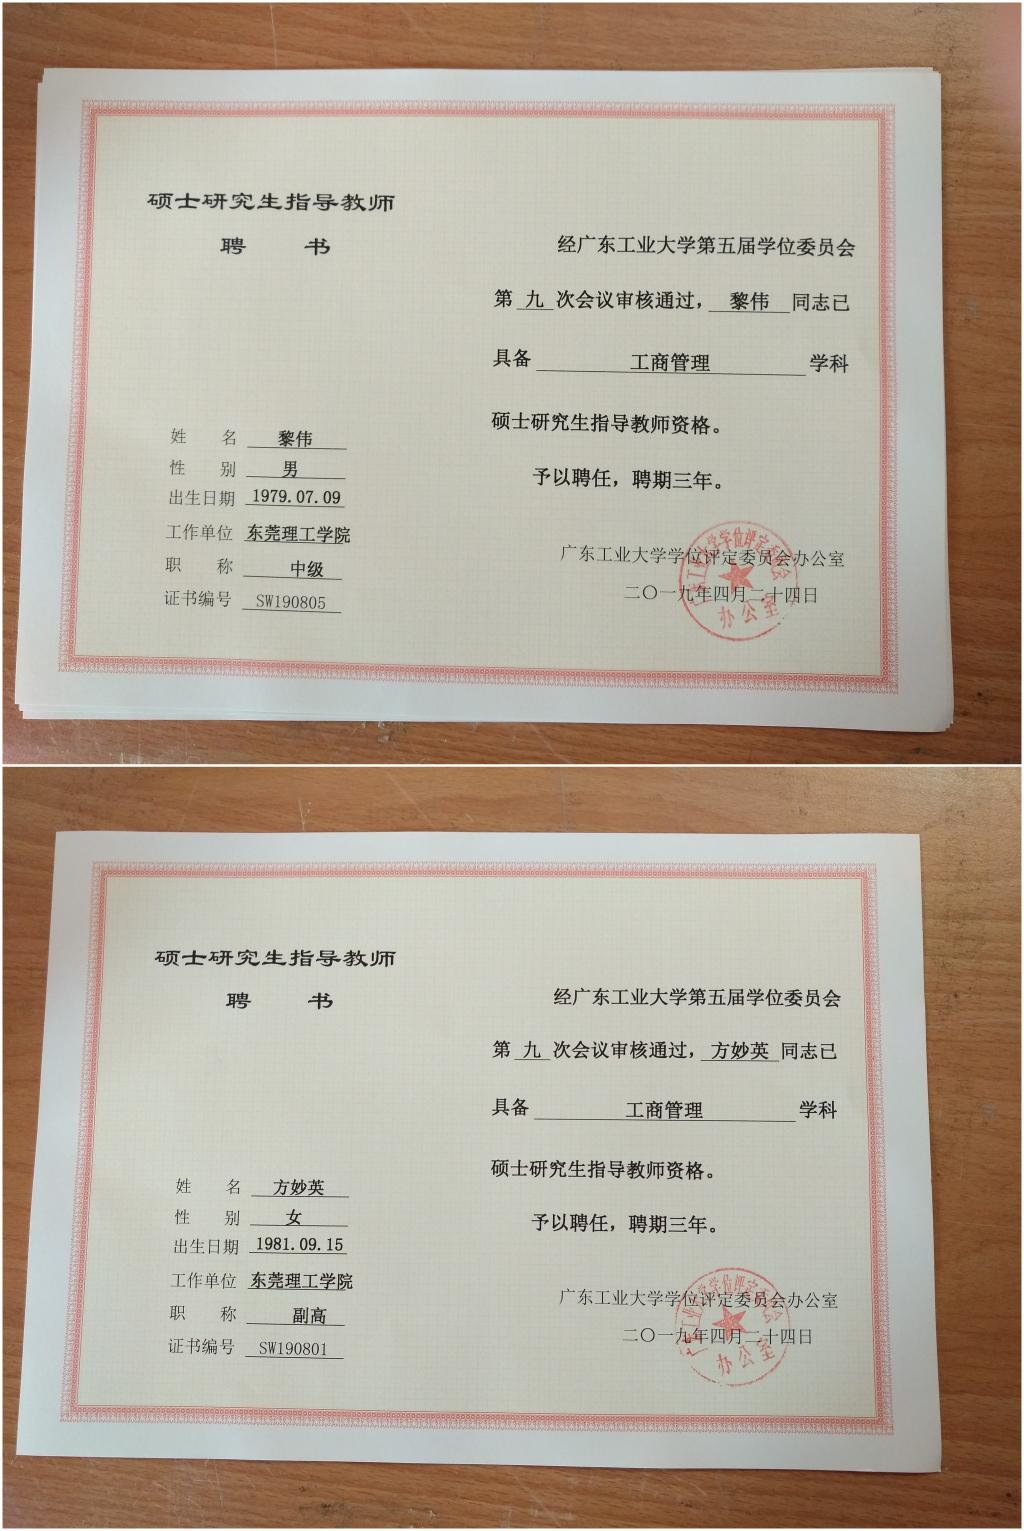 硕士研究生指导教师
聘 书
姓 名 黎伟
性 别 男
出生日期 1979.07.09
工作单位 东莞理工学院
职 称 中级
证书编号 SW190805
经广东工业大学第五届学位委员会
第 九 次会议审核通过，黎伟 同志已
具备 工商管理 学科
硕士研究生指导教师资格。
予以聘任，聘期三年。
广东工业大学学位评定委员会办公室
二〇一九年四月二十四日
广东工业大学学位评定委员会
办公室
硕士研究生指导教师
聘 书
姓 名 方妙英
性 别 女
出生日期 1981.09.15
工作单位 东莞理工学院
职 称 副高
证书编号 SW190801
经广东工业大学第五届学位委员会
第 九 次会议审核通过，方妙英 同志已
具备 工商管理 学科
硕士研究生指导教师资格。
予以聘任，聘期三年。
广东工业大学学位评定委员会办公室
二〇一九年四月二十四日
广东工业大学学位评定委员会
办公室